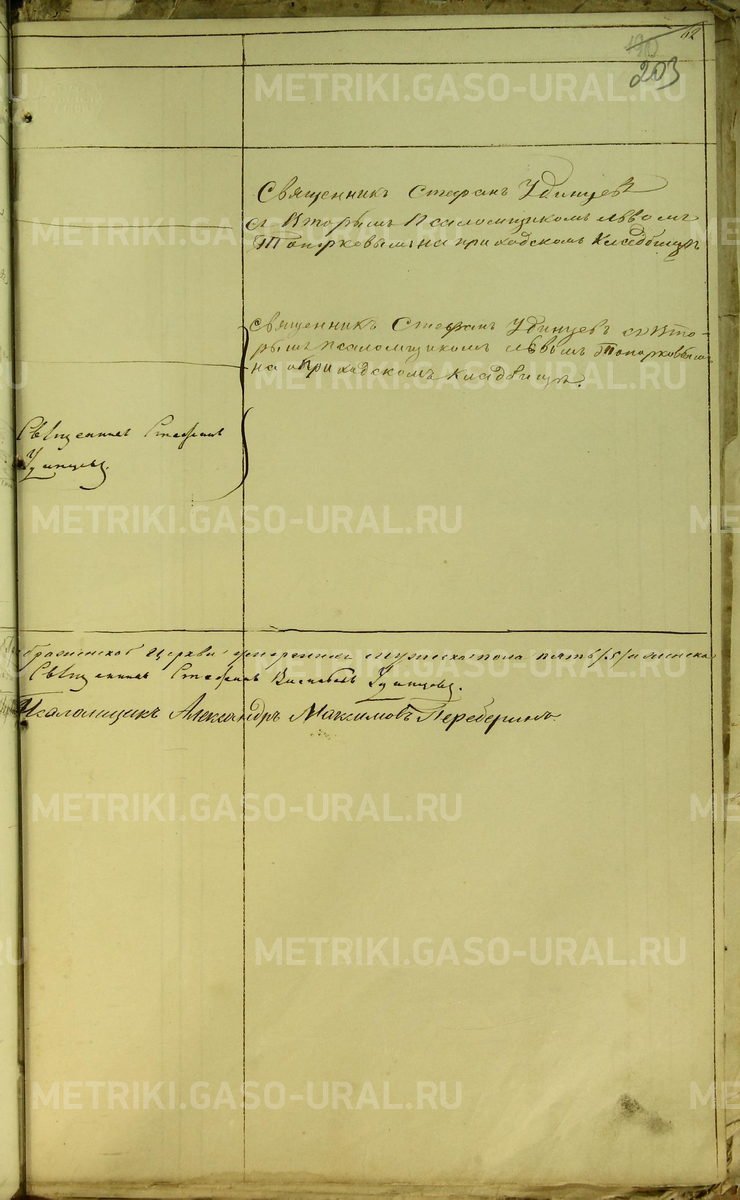 62
203
Священникъ Стефанъ Удинцевъ
съ Вторымъ Псаломщикомъ Львомъ
Топорковымъ на приходскомъ Кладбищѣ
Священникъ Стефанъ Удинцевъ съ Вто-
рымъ псаломщикомъ Львомъ Топорковымъ
на приходскомъ кладбищѣ.
Священникъ Стефанъ
Удинцевъ.
Церкви умершихъ мужеска пола пять /5/ а женска
Священникъ Стефанъ Удинцевъ.
Псаломщикъ Александръ Максимовъ Переберинъ.
METRIKI.GASO-URAL.RU